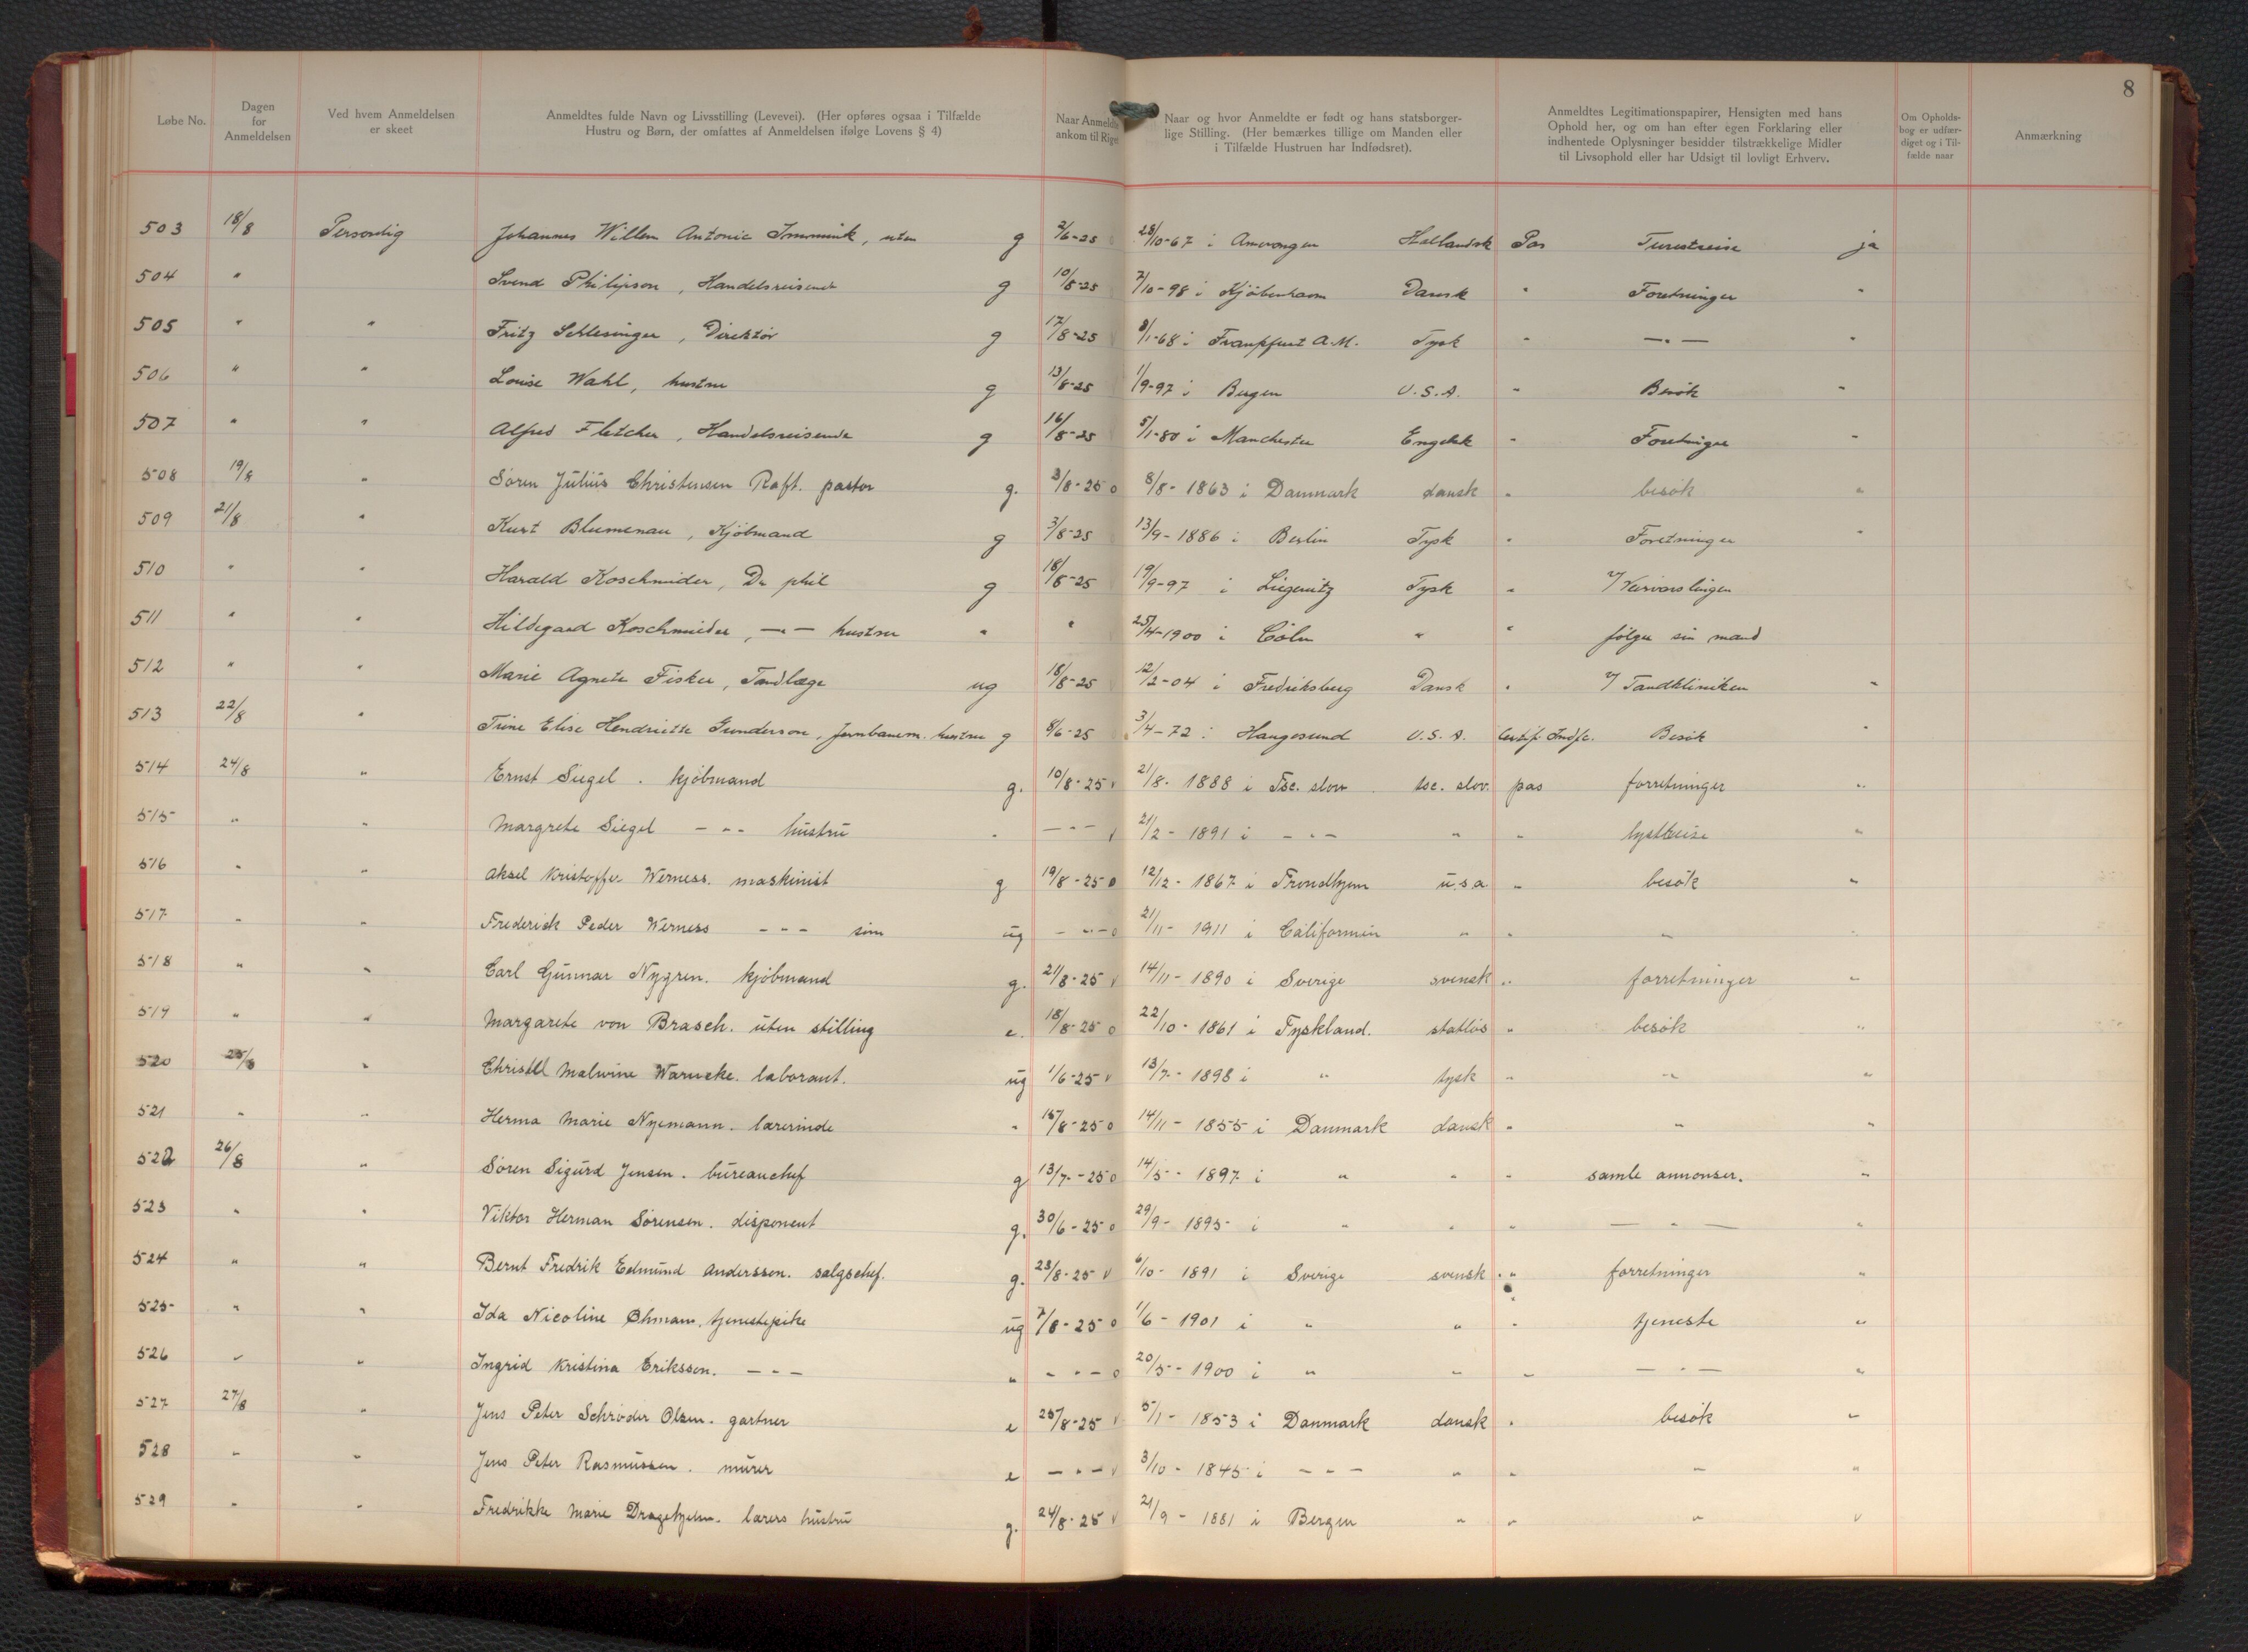 8
Løbe No. | Dagen for Anmeldelsen | Ved hvem Anmeldelsen er skeet | Anmeldtes fulde Navn og Livsstilling (Levevei). (Her opføres ogsaa i Tilfælde Hustru og Børn, der omfattes af Anmeldelsen ifølge Lovens § 4) | Naar Anmeldte ankom til Riget | Naar og hvor Anmeldte er født og hans statsborgerlige Stilling. (Her bemærkes tillige om Manden eller i Tilfælde Hustruen har Indfødsret). | Anmeldtes Legitimationspapirer, Hensigten med hans Ophold her, og om han efter egen Forklaring eller indhentede Oplysninger besidder tilstrækkelige Midler til Livsophold eller har Udsigt til lovligt Erhverv. | Om Opholdsbog er udfærdiget og i Tilfælde naar | Anmærkning
503 18/8 Personlig Johannes Willem Antonie Immink, uten g 2/6-25 28/10-67 i Amerongen Hollandsk Pas Turistreise ja
504 " Svend Philipson, Handelsreisende g 10/8-25 7/10-98 i Kjöbenhavn Dansk " Foretninger "
505 " " Fritz Schlesinger, Direktör g 17/8-25 8/1-68 i Frankfurt A.M. Tysk " —"— "
506 " " Louise Wahl, hustru g 13/8-25 1/9-97 i Bergen U.S.A. " Besök "
507 " " Alfred Fletcher, Handelsreisende g 16/8-25 5/1-80 i Manchester Engelsk " Foretninger "
508 19/8 " Sören Julius Christensen Raft. pastor g. 3/8-25 o 8/8-1863 i Danmark dansk " besök "
509 21/8 " Kurt Blumenau, Kjöbmand g 3/8-25 13/9-1886 i Berlin Tysk " Foretninger "
510 " " Harald Koschmieder, Dr phil g 18/8-25 19/9-97 i Liegnitz Tysk " v/ Veirvarslingen
511 " " Hildegard Koschmieder, —"— hustru " " 25/4-1900 i Cöln " " fölger sin mand
512 " " Marie Agnete Fisker, Tandlæge ug 18/8-25 12/2-04 i Fredriksberg Dansk " v/ Tandkliniken "
513 22/8 " Trine Elise Hendriette Gunderson, Jernbanem. hustru g 8/6-25 3/4-72 i Haugesund U.S.A. Certif. Besök "
514 24/8 " Ernst Siegel. kjöbmand g. 10/8-25 v 21/8-1888 i Tsc. slov tsc. slov. pas forretninger "
515 " " Margrete Siegel -"- hustru " —"— v 21/2-1891 i -"- " " lystreise "
516 " " Aksel Kristoffer Werness. maskinist g 19/8-25 o 12/12-1867 i Trondhjem u.s.a " besök "
517 " " Frederick Peder Werness -"- sön ug -"- o 21/11-1911 i Californien " " " "
518 " " Carl Gunnar Nygren. kjöbmand g. 21/8-25 v 14/11-1890 i Sverige svensk " forretninger "
519 " " Margarete von Brasch. uten stilling e. 18/8-25 o 22/10-1861 i Tyskland. statlös " besök "
520 25/8 " Christel Malwine Warneke. laborant. ug 1/6-25 v 13/7-1898 i " tysk " " "
521 " " Herma Marie Nyemann. lærerinde " 15/8-25 o 14/11-1855 i Danmark dansk " " "
522 26/8 " Sören Sigurd Jensen. bureauchef g 13/7-25 o 14/5-1897 i " " " samle annonser. "
523 " " Viktor Herman Sörensen. disponent g. 30/6-25 o 29/9-1895 i " " " —"— "
524 " " Bernt Fredrik Edmund Anderssen. salgschef. g. 23/8-25 v 6/10-1891 i Sverige svensk " forretninger "
525 " " Ida Nicoline Öhmam. tjenestepike ug 7/8-25 o 1/6-1901 i " " " tjeneste "
526 " " Ingrid Kristina Eriksson. -"- " -"- o 20/5-1900 i " " " —"— "
527 27/8 " Jens Peter Schröder Olsen. gartner e 25/8-25 v 5/1-1853 i Danmark dansk " besök "
528 " " Jens Peter Rasmussen. murer e —"— v 3/10-1845 i -"- " " " "
529 " " Fredrikke Marie Dragehjelm. lærers hustru g. 24/8-25 v 21/9-1881 i Bergen " " " "